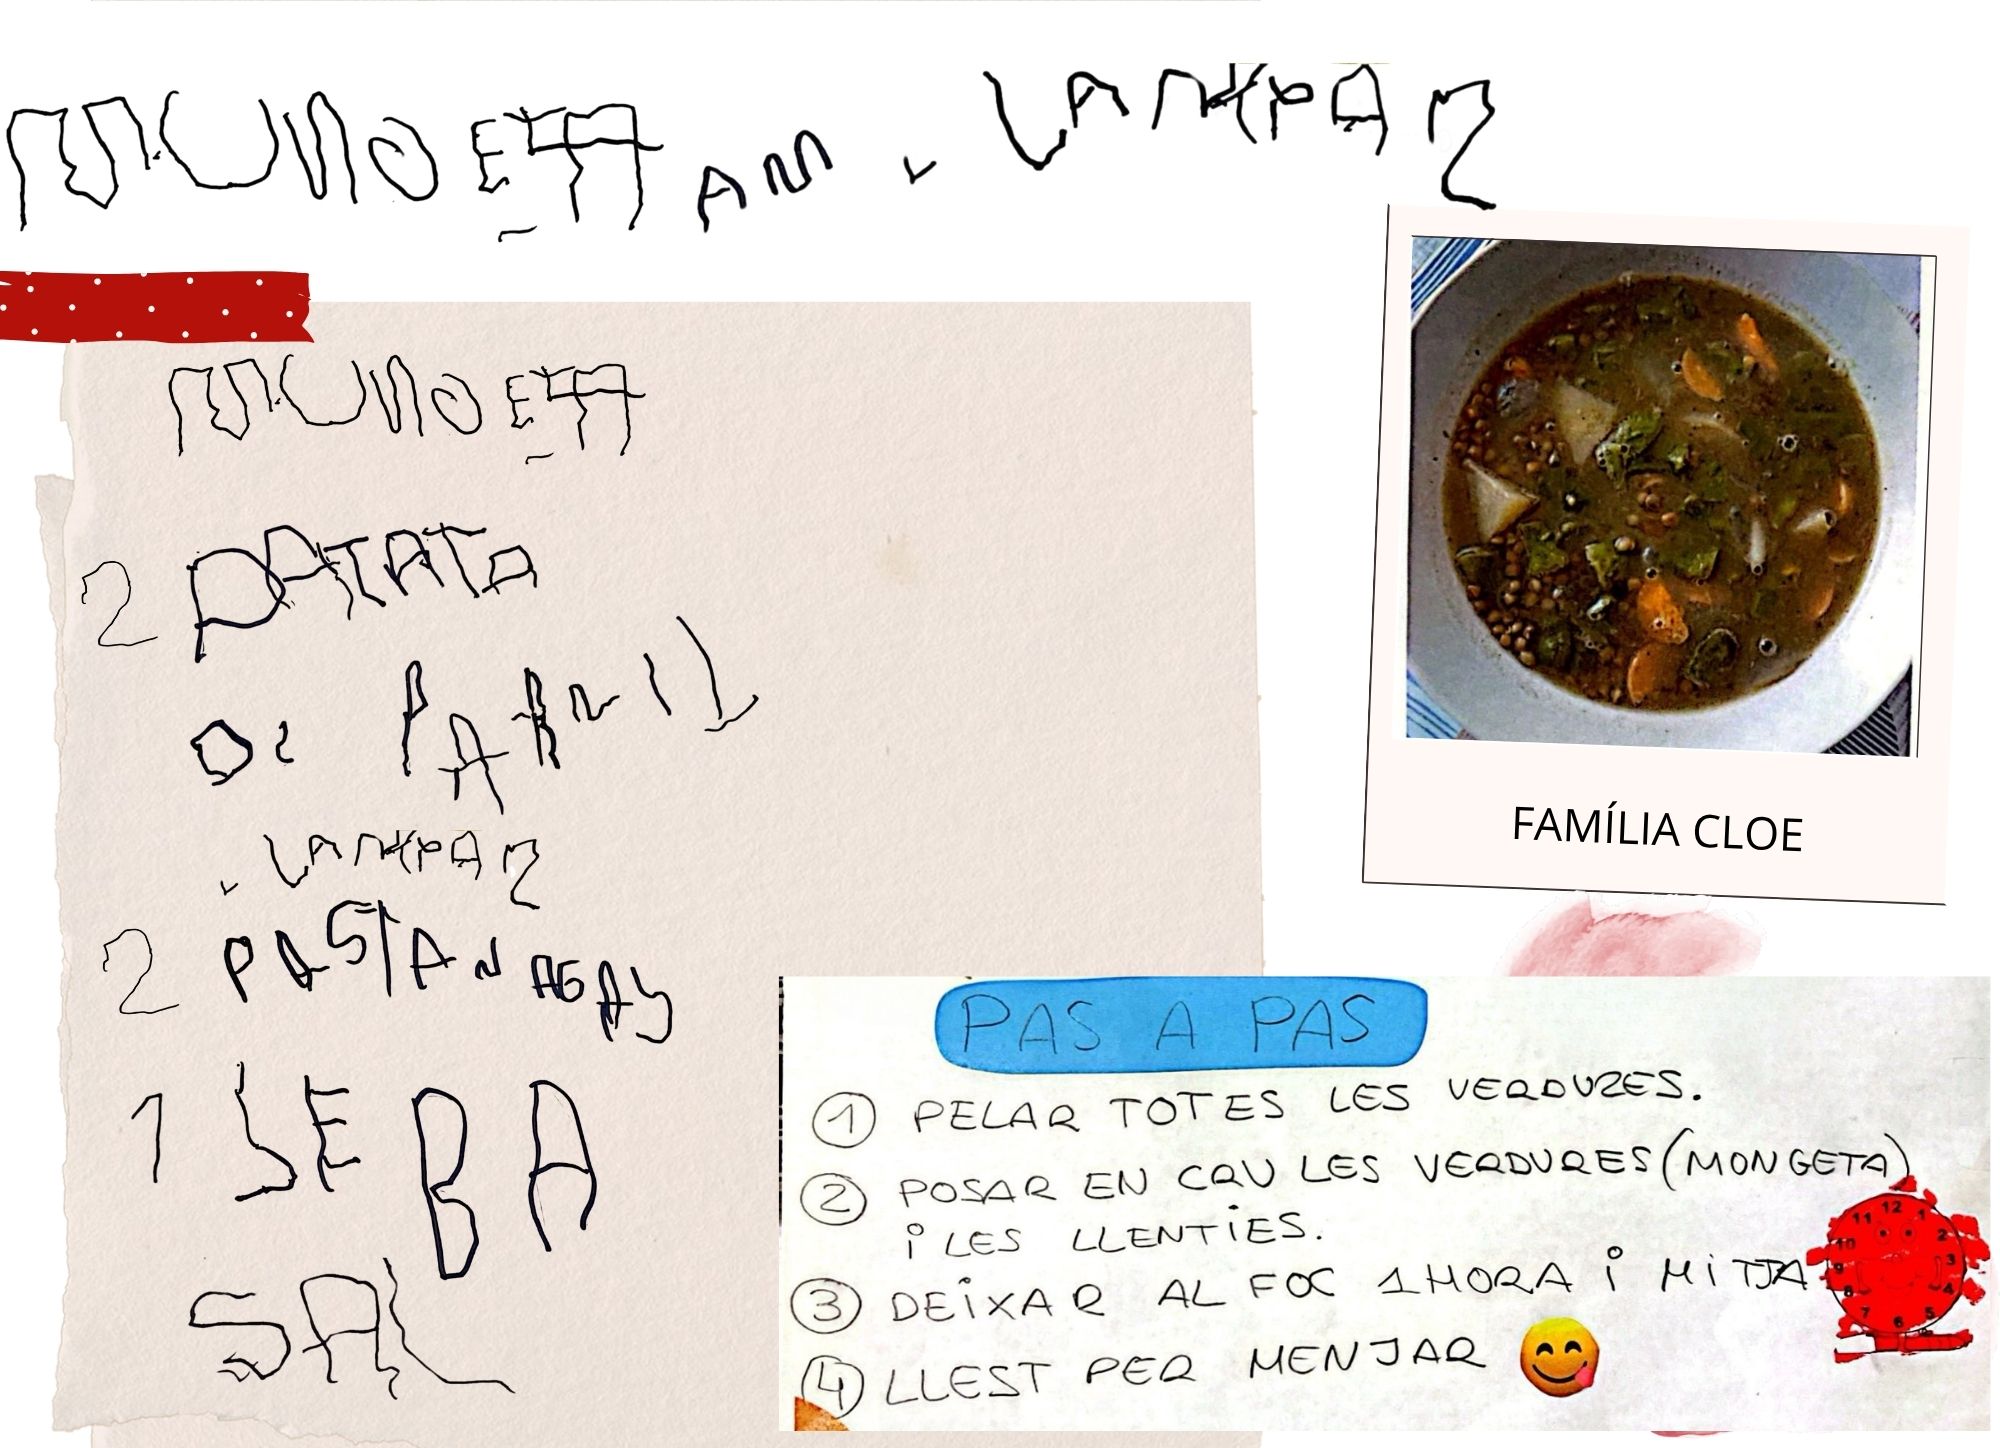 MUNOETA AM
MUNOETA
2 PATATA
2 PASTANAGAS
1 SEBA
SAL
FAMÍLIA CLOE
PAS A PAS
1 PELAR TOTES LES VERDURES.
2 POSAR EN CRU LES VERDURES (MONGETA)
i LES LLENTIES.
3 DEIXAR AL FOC 1 HORA i MITJA
4 LLEST PER MENJAR
12 1 2 3 4 5 6 7 8 9 10 11